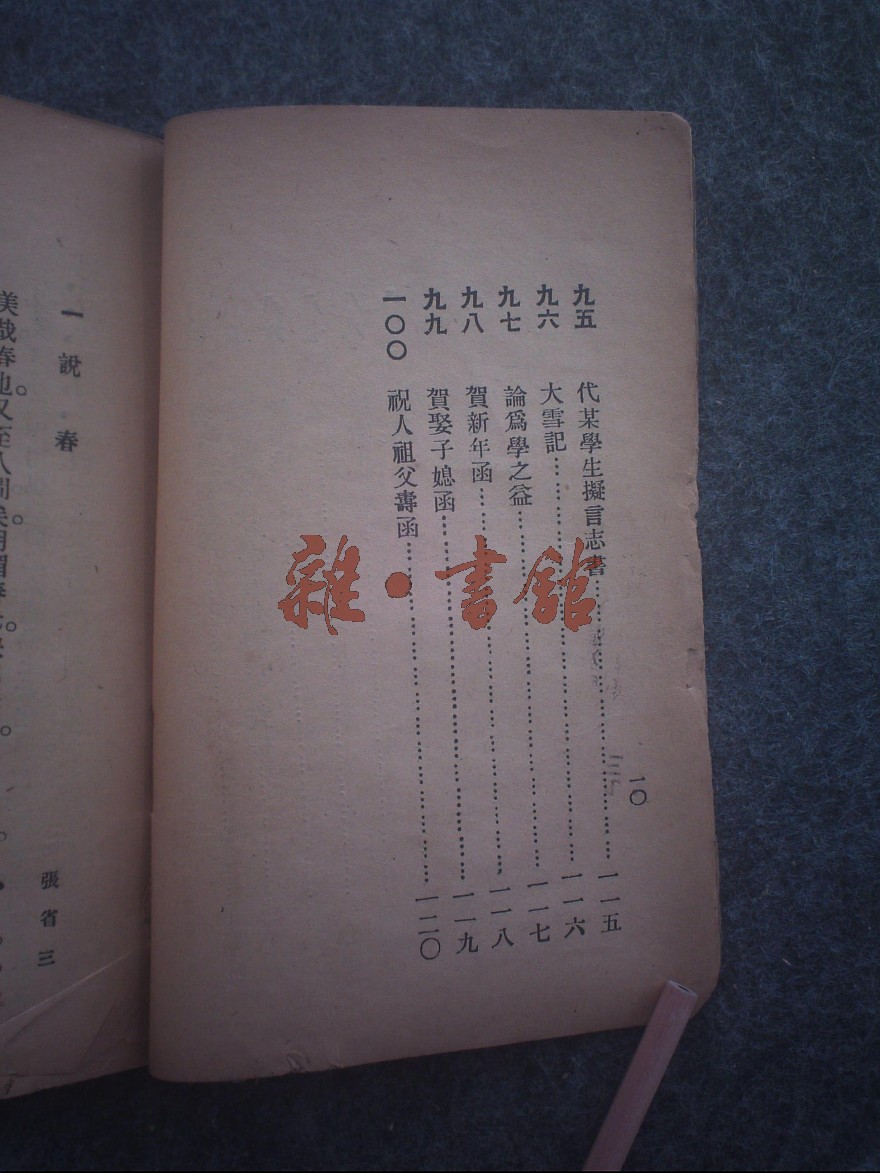 九五 代某學生擬言志書……一一五
九六 大雪記……一一六
九七 論爲學之益……一一七
九八 賀新年函……一一八
九九 賀娶子媳函……一一九
一〇〇 祝人祖父壽函……一二〇
一〇
雜·書館
一 說春
張省三
美哉春也。又至人間